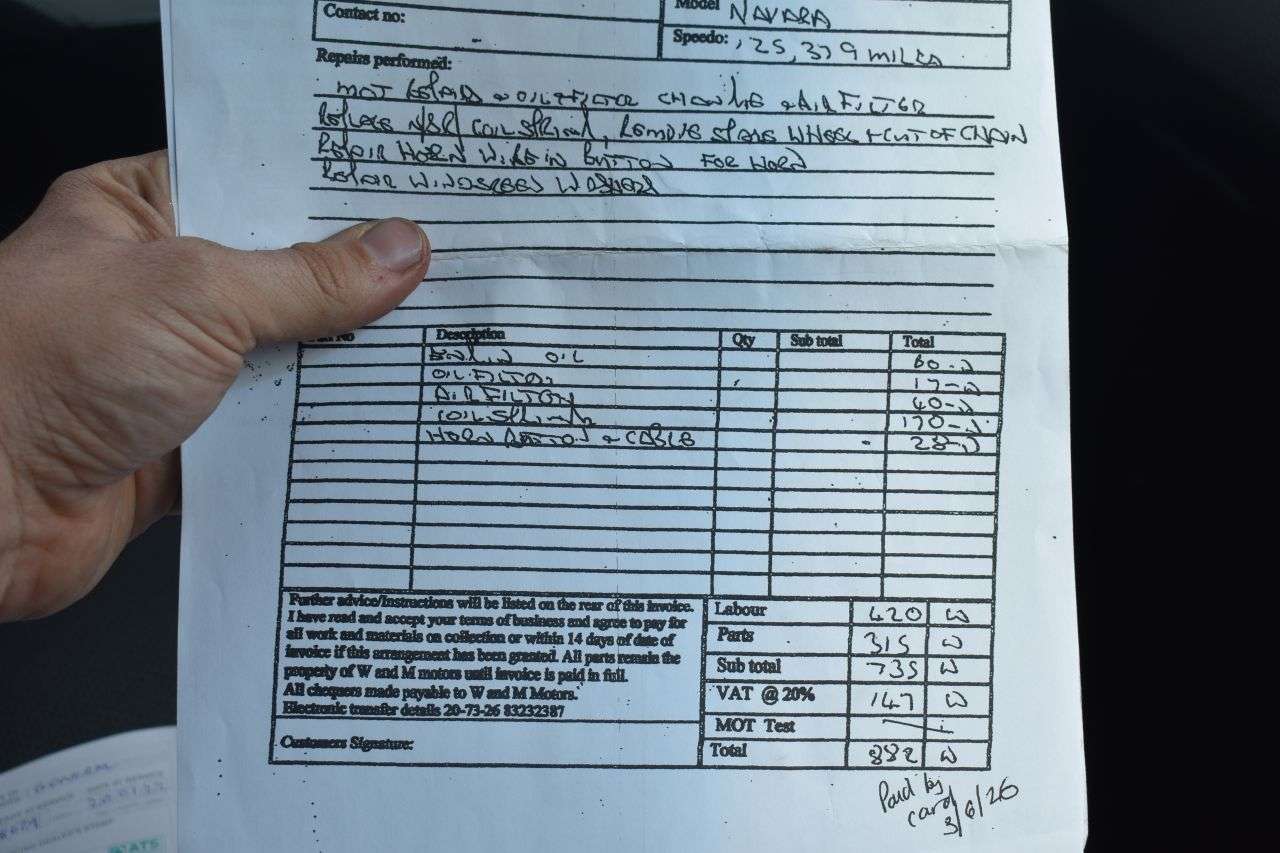 Contact no: -
Model NAVARA
Speedo: 125,379 MILES
Repairs performed:
MOT REPAIRS + OIL + FILTER CHANGE + AIR FILTER
REPLACE N/S/R COIL SPRING, REMOVE SPARE WHEEL + CUT OF CHAIN
REPAIR HORN WIRE IN BUTTON FOR HORN
REPAIR WINDSCREEN WASHERS
No Description Qty Sub total Total
ENGIN OIL 60-00
OIL FILTER 17-00
AIR FILTER 40-00
COIL SPRING 170-00
HORN BUTTON + CABLE 28-00
Further advice/Instructions will be listed on the rear of this invoice.
I have read and accept your terms of business and agree to pay for
all work and materials on collection or within 14 days of date of
invoice if this arrangement has been granted. All parts remain the
property of W and M motors until invoice is paid in full.
All chequers made payable to W and M Motors.
Electronic transfer details 20-73-26 83232387
Customers Signature:
Labour 420 00
Parts 315 00
Sub total 735 00
VAT @ 20% 147 00
MOT Test
Total 882 00
Paid by
card
3/6/26
GENERAL
ATS